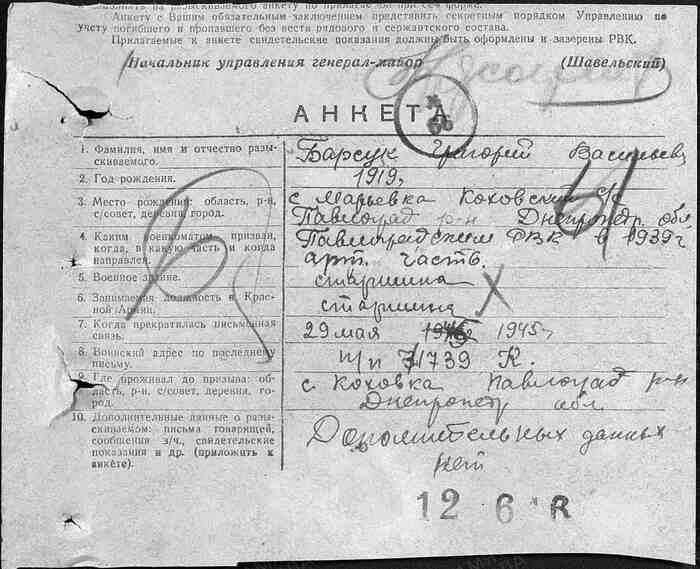 Анкету с Вашим обязательным заключением представить секретным порядком Управлению по
Учету погибшего и пропавшего без вести рядового и сержантского состава.
Прилагаемые к анкете свидетельские показания должны быть оформлены и заверены РВК.
Начальник управления генерал-майор (Шавельский)
АНКЕТА
66
1. Фамилия, имя и отчество разы-
скиваемого.
Барсук Григорий Васильев
2. Год рождения.
1919г
3. Место рождения: область, р-н,
с/совет, деревня, город.
с Марьевка Коховский с/с
Павлоград р-н Днепропетр. обл.
4. Каким военкоматом призван,
когда, в какую часть и когда
направлен.
Павлоградским РВК в 1939г
арт. часть.
5. Военное звание.
старшина
6. Занимаемая должность в Крас-
ной Армии.
старшина
7. Когда прекратилась письменная
связь.
29 мая 1945г
8. Воинский адрес по последнему
письму.
п/п 71739 К.
9. Где проживал до призыва: об-
ласть, р-н, с/совет, деревня, го-
род.
с Коховка Павлоград р-н
Днепропетр обл
10. Дополнительные данные о разы-
скиваемом: письма товарищей,
сообщения з/ч., свидетельские
показания и др. (приложить к
анкете).
Дополнительных данных
нет
12 6 Я